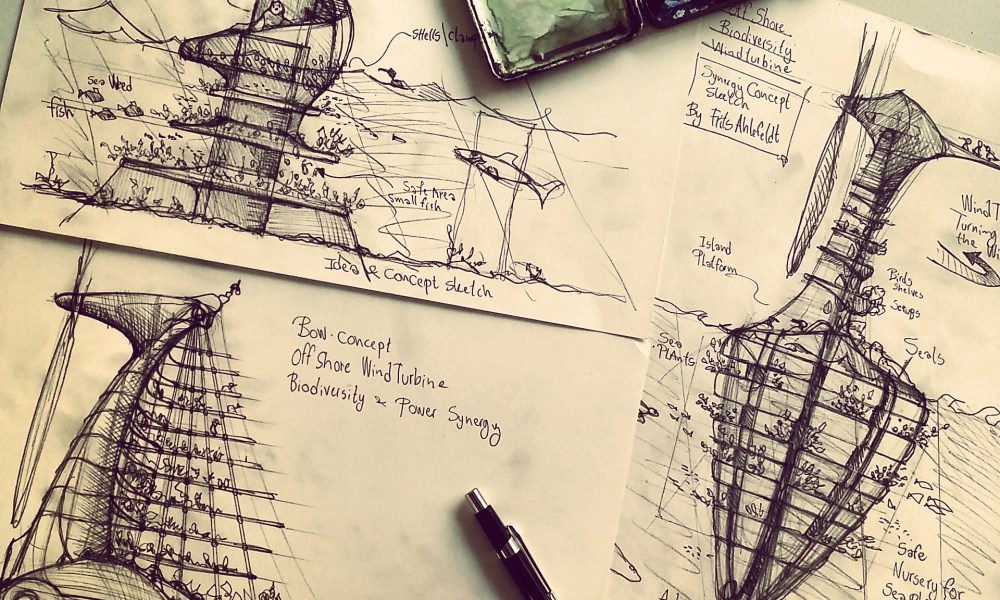 shells/clams
Sea Weed
fish
Safe Area
small fish
Idea & Concept sketch
Off Shore
Biodiversity
Windturbine
Synergy Concept
Sketch
By Frits Ahlefeldt
Wind T
Turning
the Wi
Island
Platform
Birds
Shelves
Setups
Sea
Plants
Seals
Safe
Nursery for
Bow-Concept
Off Shore WindTurbine
Biodiversity & Power Synergy